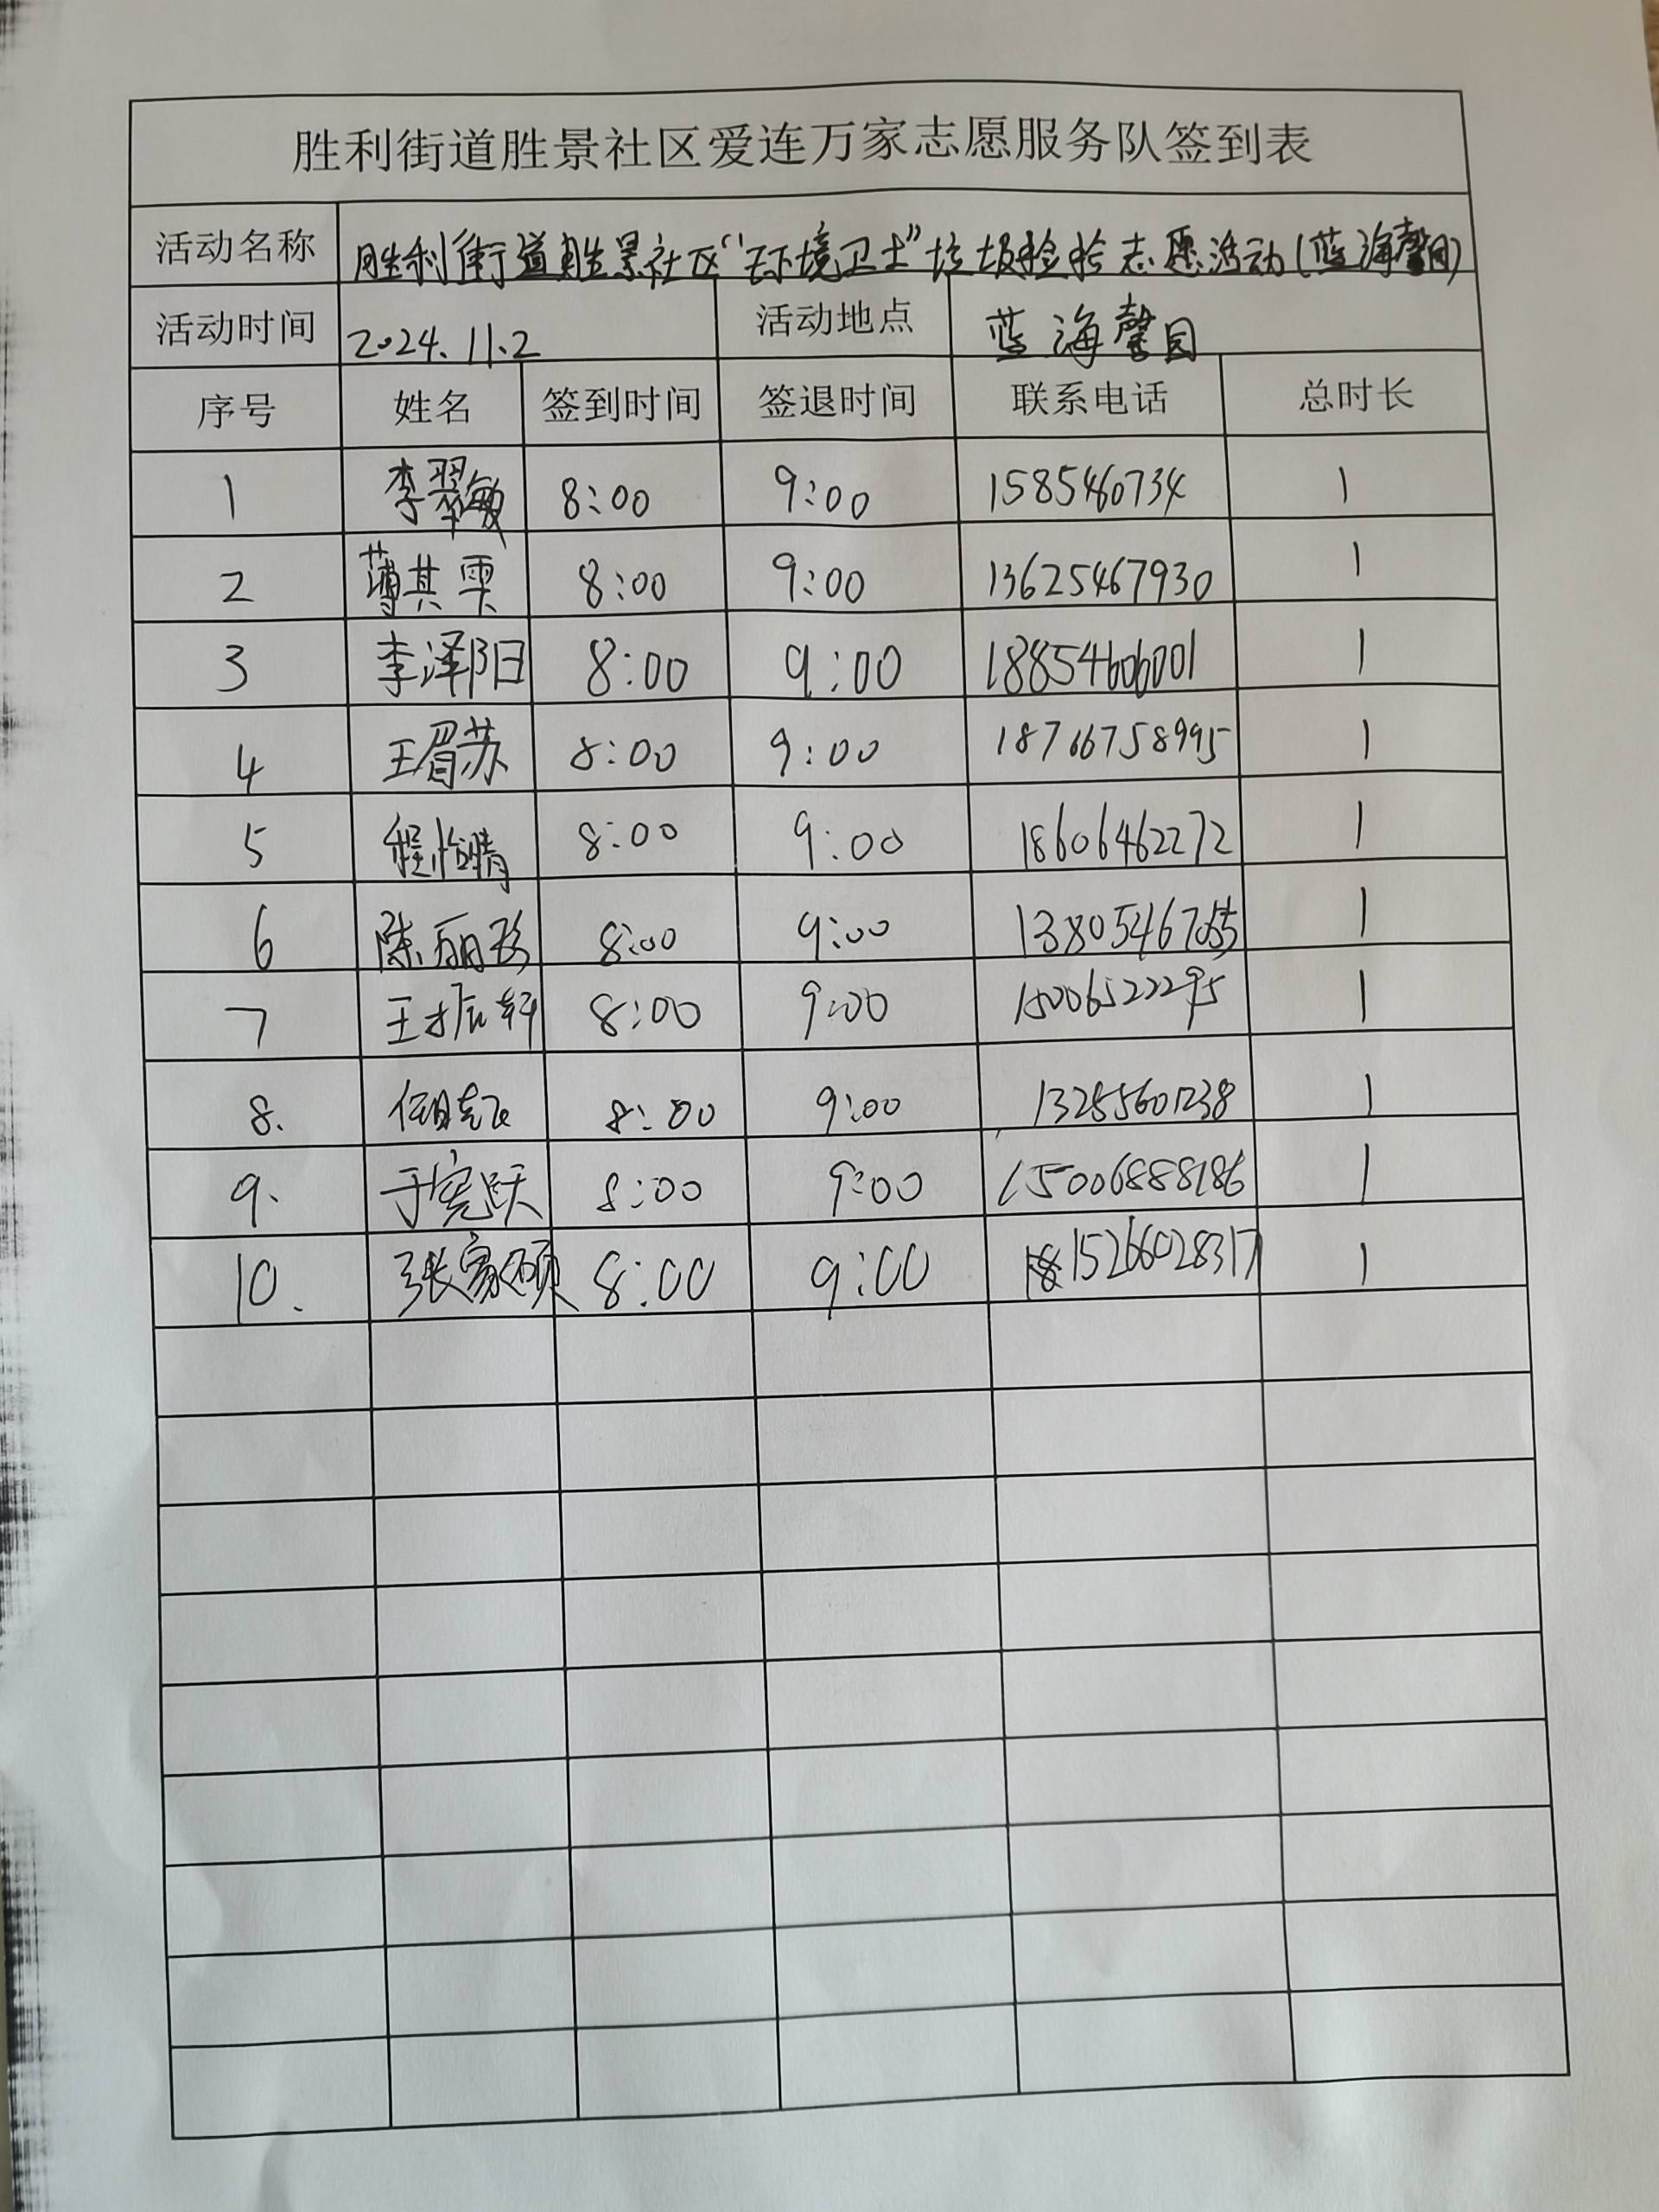 胜利街道胜景社区爱连万家志愿服务队签到表
活动名称 胜利街道胜景社区“环境卫士”垃圾捡拾志愿活动(蓝海馨园)
活动时间 2024.11.2 活动地点 蓝海馨园
序号 姓名 签到时间 签退时间 联系电话 总时长
1 李翠敏 8:00 9:00 1585460734 1
2 薄其雯 8:00 9:00 13625467930 1
3 李泽阳 8:00 9:00 18854606001 1
4 王眉苏 8:00 9:00 18766758995 1
5 程怡晴 8:00 9:00 18606462272 1
6 陈丽珍 8:00 9:00 1
7 王振轩 8:00 9:00 15006522295 1
8. 8:00 9:00 13255601238 1
9. 于宪跃 8:00 9:00 15006888186 1
10. 张家硕 8:00 9:00 15266028317 1